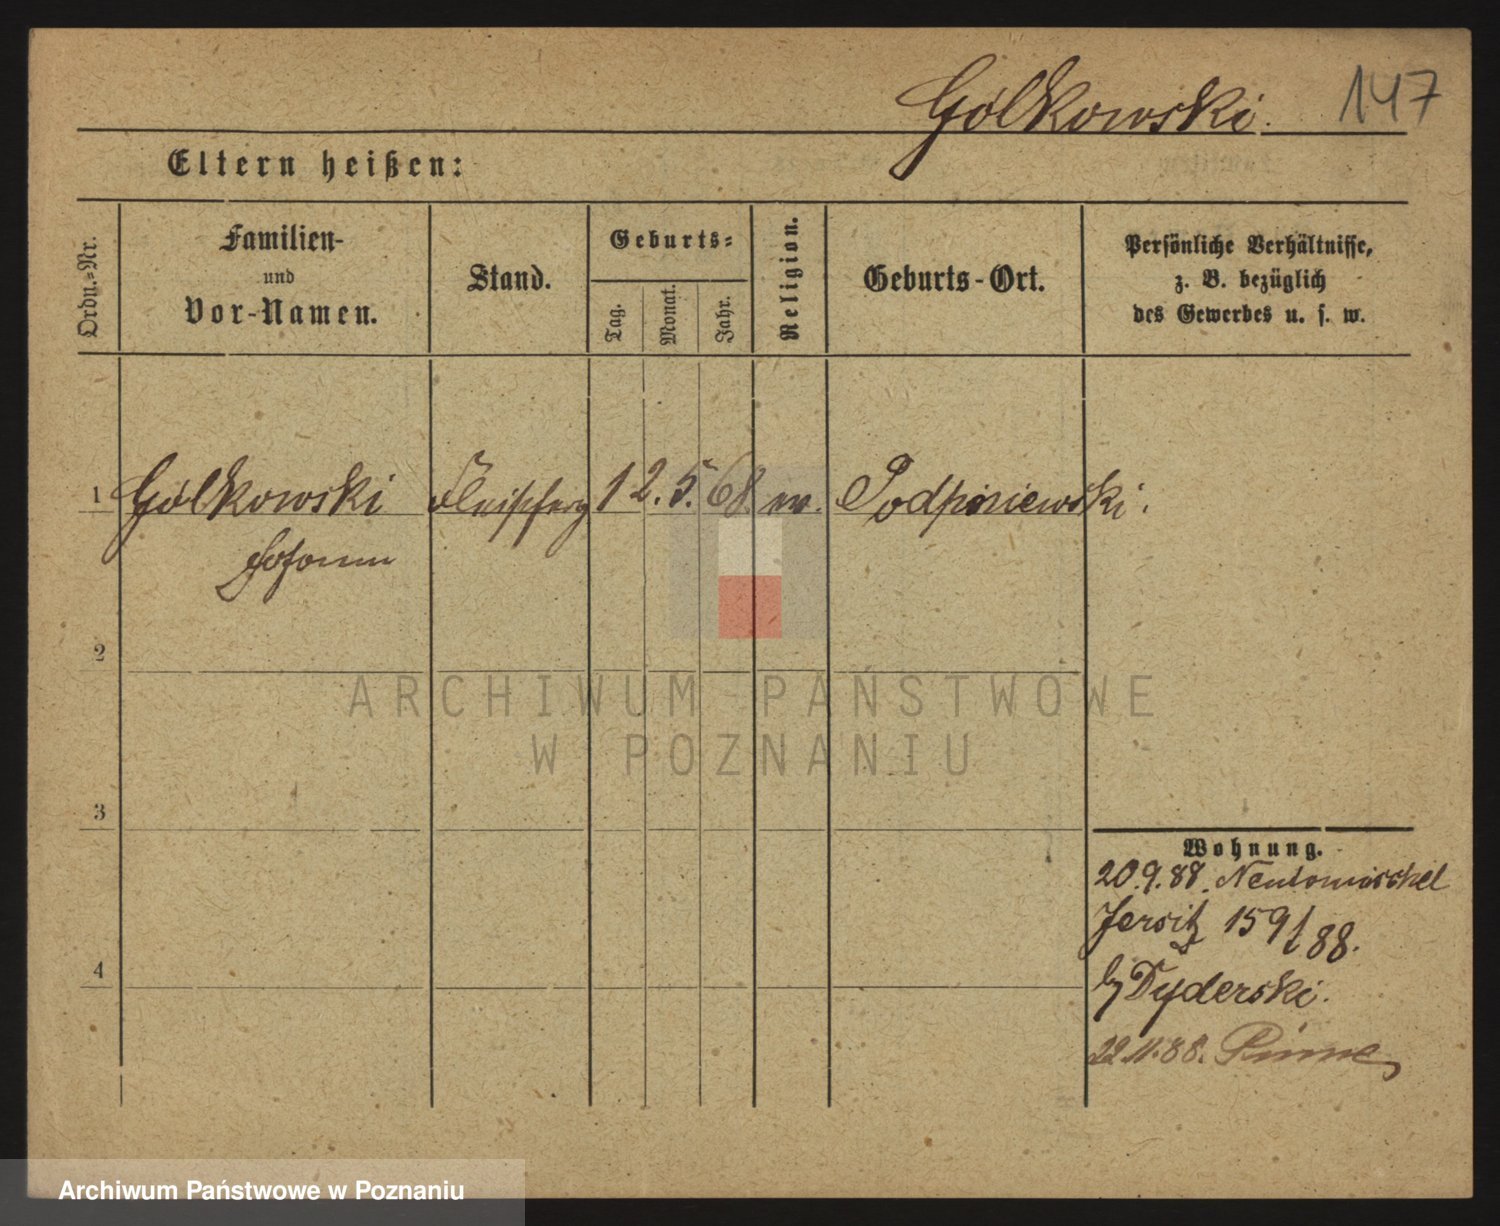 Gólkowski. 147
Eltern heißen:
Ordn.-Nr.
Familien-
und
Vor-Namen.
Stand.
Geburts-
Tag.
Monat.
Jahr.
Religion.
Geburts-Ort.
Persönliche Verhältnisse,
z. B. bezüglich
des Gewerbes u. s. w.
1 Gólkowski 12. 5. 68. m. Podpniewski.
Johann
2
3
4
Wohnung.
20.9.88. Neutomischel
Jersitz 159/88.
b/ Dyderski.
22.11.88. Pinne
ARCHIWUM PAŃSTWOWE
W POZNANIU
Archiwum Państwowe w Poznaniu